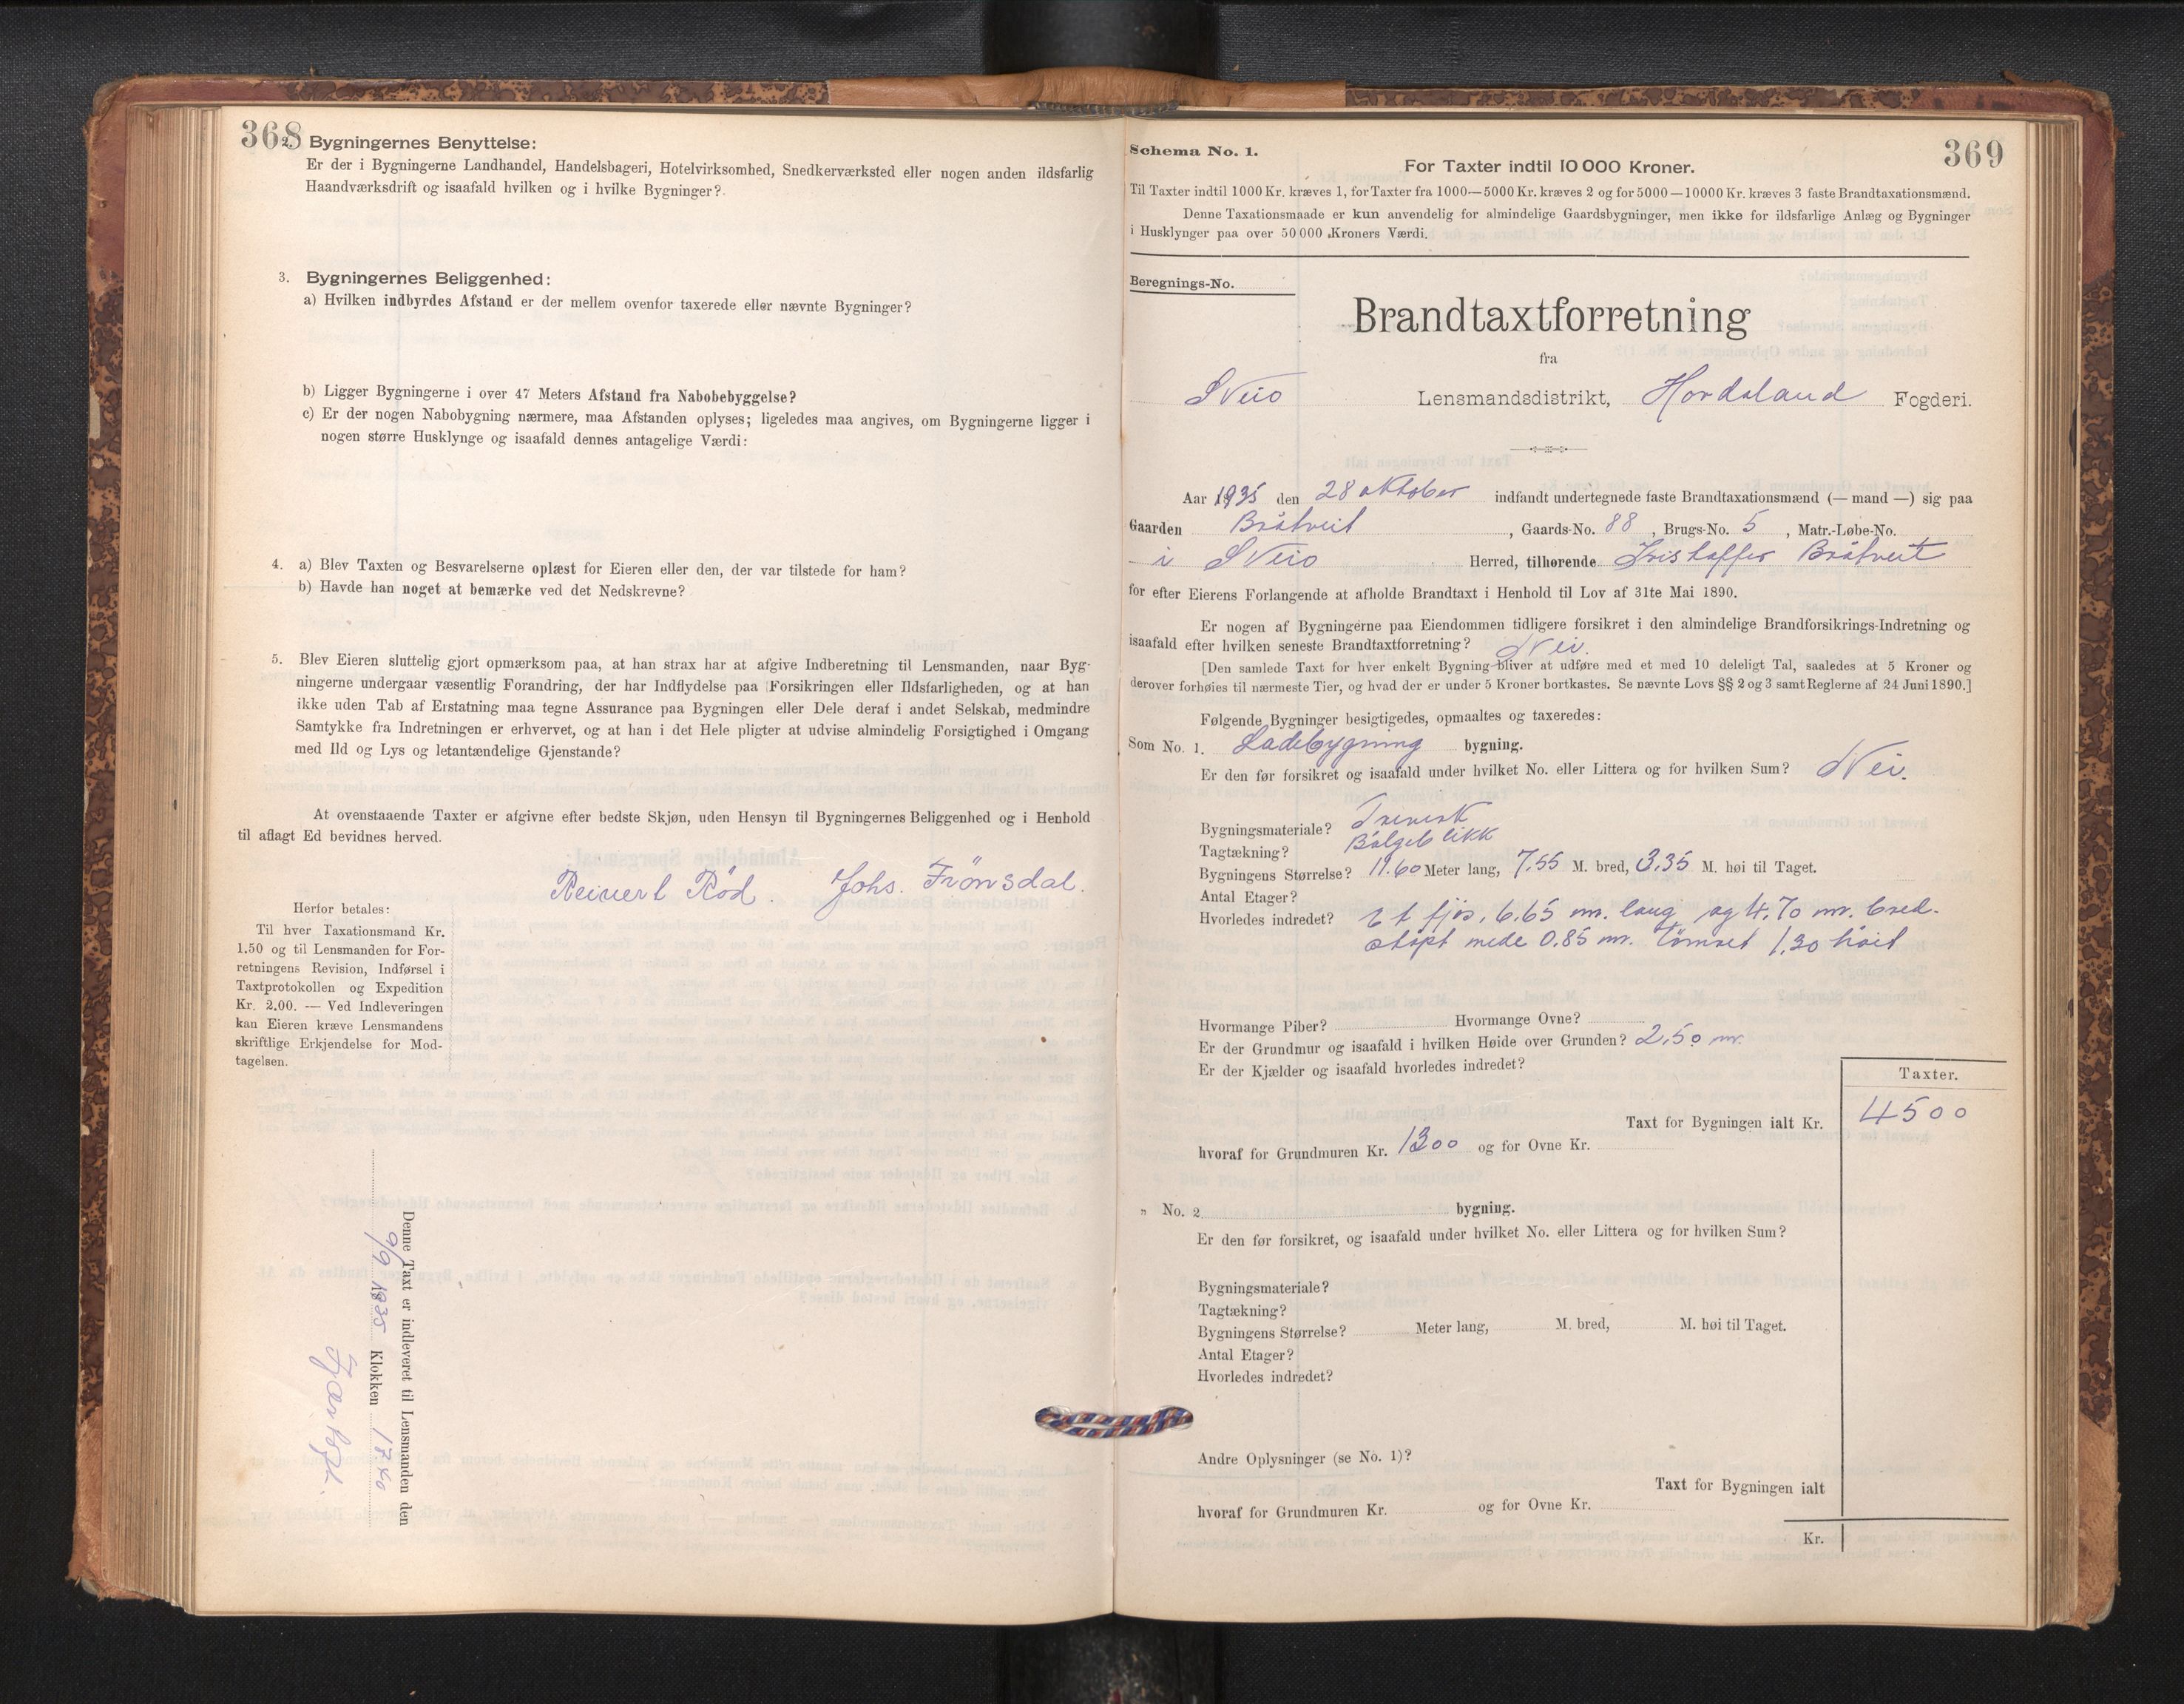 368
2. Bygningernes Benyttelse:
Er der i Bygningerne Landhandel, Handelsbageri, Hotelvirksomhed, Snedkerværksted eller nogen anden ildsfarlig
Haandværksdrift og isaafald hvilken og i hvilke Bygninger?
3. Bygningernes Beliggenhed:
a) Hvilken indbyrdes Afstand er der mellem ovenfor taxerede eller nævnte Bygninger?
b) Ligger Bygningerne i over 47 Meters Afstand fra Nabobebyggelse?
c) Er der nogen Nabobygning nærmere, maa Afstanden oplyses; ligeledes maa angives, om Bygningerne ligger i
nogen større Husklynge og isaafald dennes antagelige Værdi:
4. a) Blev Taxten og Besvarelserne oplæst for Eieren eller den, der var tilstede for ham?
b) Havde han noget at bemærke ved det Nedskrevne?
5. Blev Eieren sluttelig gjort opmærksom paa, at han strax har at afgive Indberetning til Lensmanden, naar Byg-
ningerne undergaar væsentlig Forandring, der har Indflydelse paa Forsikringen eller Ildsfarligheden, og at han
ikke uden Tab af Erstatning maa tegne Assurance paa Bygningen eller Dele deraf i andet Selskab, medmindre
Samtykke fra Indretningen er erhvervet, og at han i det Hele pligter at udvise almindelig Forsigtighed i Omgang
med Ild og Lys og letantændelige Gjenstande?
At ovenstaaende Taxter er afgivne efter bedste Skjøn, uden Hensyn til Bygningernes Beliggenhed og i Henhold
til aflagt Ed bevidnes herved.
Reinert Rød. Johs. Trönsdal.
Herfor betales:
Til hver Taxationsmand Kr.
1.50 og til Lensmanden for For-
retningens Revision, Indførsel i
Taxtprotokollen og Expedition
Kr. 2.00. — Ved Indleveringen
kan Eieren kræve Lensmandens
skriftlige Erkjendelse for Mod-
tagelsen.
Denne Taxt er indleveret til Lensmanden den
9/9 1935 Klokken 17 40
369
Schema No. 1.
For Taxter indtil 10 000 Kroner.
Til Taxter indtil 1000 Kr. kræves 1, for Taxter fra 1000—5000 Kr. kræves 2 og for 5000—10000 Kr. kræves 3 faste Brandtaxationsmænd.
Denne Taxationsmaade er kun anvendelig for almindelige Gaardsbygninger, men ikke for ildsfarlige Anlæg og Bygninger
i Husklynger paa over 50 000 Kroners Værdi.
Beregnings-No.
Brandtaxtforretning
fra
Sveio Lensmandsdistrikt, Hordaland Fogderi.
Aar 1935 den 28 oktober indfandt undertegnede faste Brandtaxationsmænd (— mand —) sig paa
Gaarden Bråtveit, Gaards-No. 88, Brugs-No. 5, Matr.-Løbe-No.
i Sveio Herred, tilhørende Kristoffer Bråtveit
for efter Eierens Forlangende at afholde Brandtaxt i Henhold til Lov af 31te Mai 1890.
Er nogen af Bygningerne paa Eiendommen tidligere forsikret i den almindelige Brandforsikrings-Indretning og
isaafald efter hvilken seneste Brandtaxtforretning? Nei.
[Den samlede Taxt for hver enkelt Bygning bliver at udføre med et med 10 deleligt Tal, saaledes at 5 Kroner og
derover forhøies til nærmeste Tier, og hvad der er under 5 Kroner bortkastes. Se nævnte Lovs §§ 2 og 3 samt Reglerne af 24 Juni 1890.]
Følgende Bygninger besigtigedes, opmaaltes og taxeredes:
Som No. 1. Ladebygning bygning.
Er den før forsikret og isaafald under hvilket No. eller Littera og for hvilken Sum? Nei.
Bygningsmateriale? Treverk
Tagtækning? Bölgeblikk
Bygningens Størrelse? 11.60 Meter lang, 7.55 M. bred, 3.35 M. høi til Taget.
Antal Etager?
Hvorledes indredet? Et fjös, 6.65 m. lang og 4.70 m. bred.
støpt mede 0.85 m. tömret 1.30 höit
Hvormange Piber? Hvormange Ovne?
Er der Grundmur og isaafald i hvilken Høide over Grunden? 2.50 m.
Er der Kjælder og isaafald hvorledes indredet?
Taxter.
Taxt for Bygningen ialt Kr. 4500
hvoraf for Grundmuren Kr. 1300 og for Ovne Kr.
" No. 2 bygning.
Er den før forsikret, og isaafald under hvilket No. eller Littera og for hvilken Sum?
Bygningsmateriale?
Tagtækning?
Bygningens Størrelse? Meter lang, M. bred, M. høi til Taget.
Antal Etager?
Hvorledes indredet?
Andre Oplysninger (se No. 1)?
Taxt for Bygningen ialt
hvoraf for Grundmuren Kr. og for Ovne Kr.
Kr.